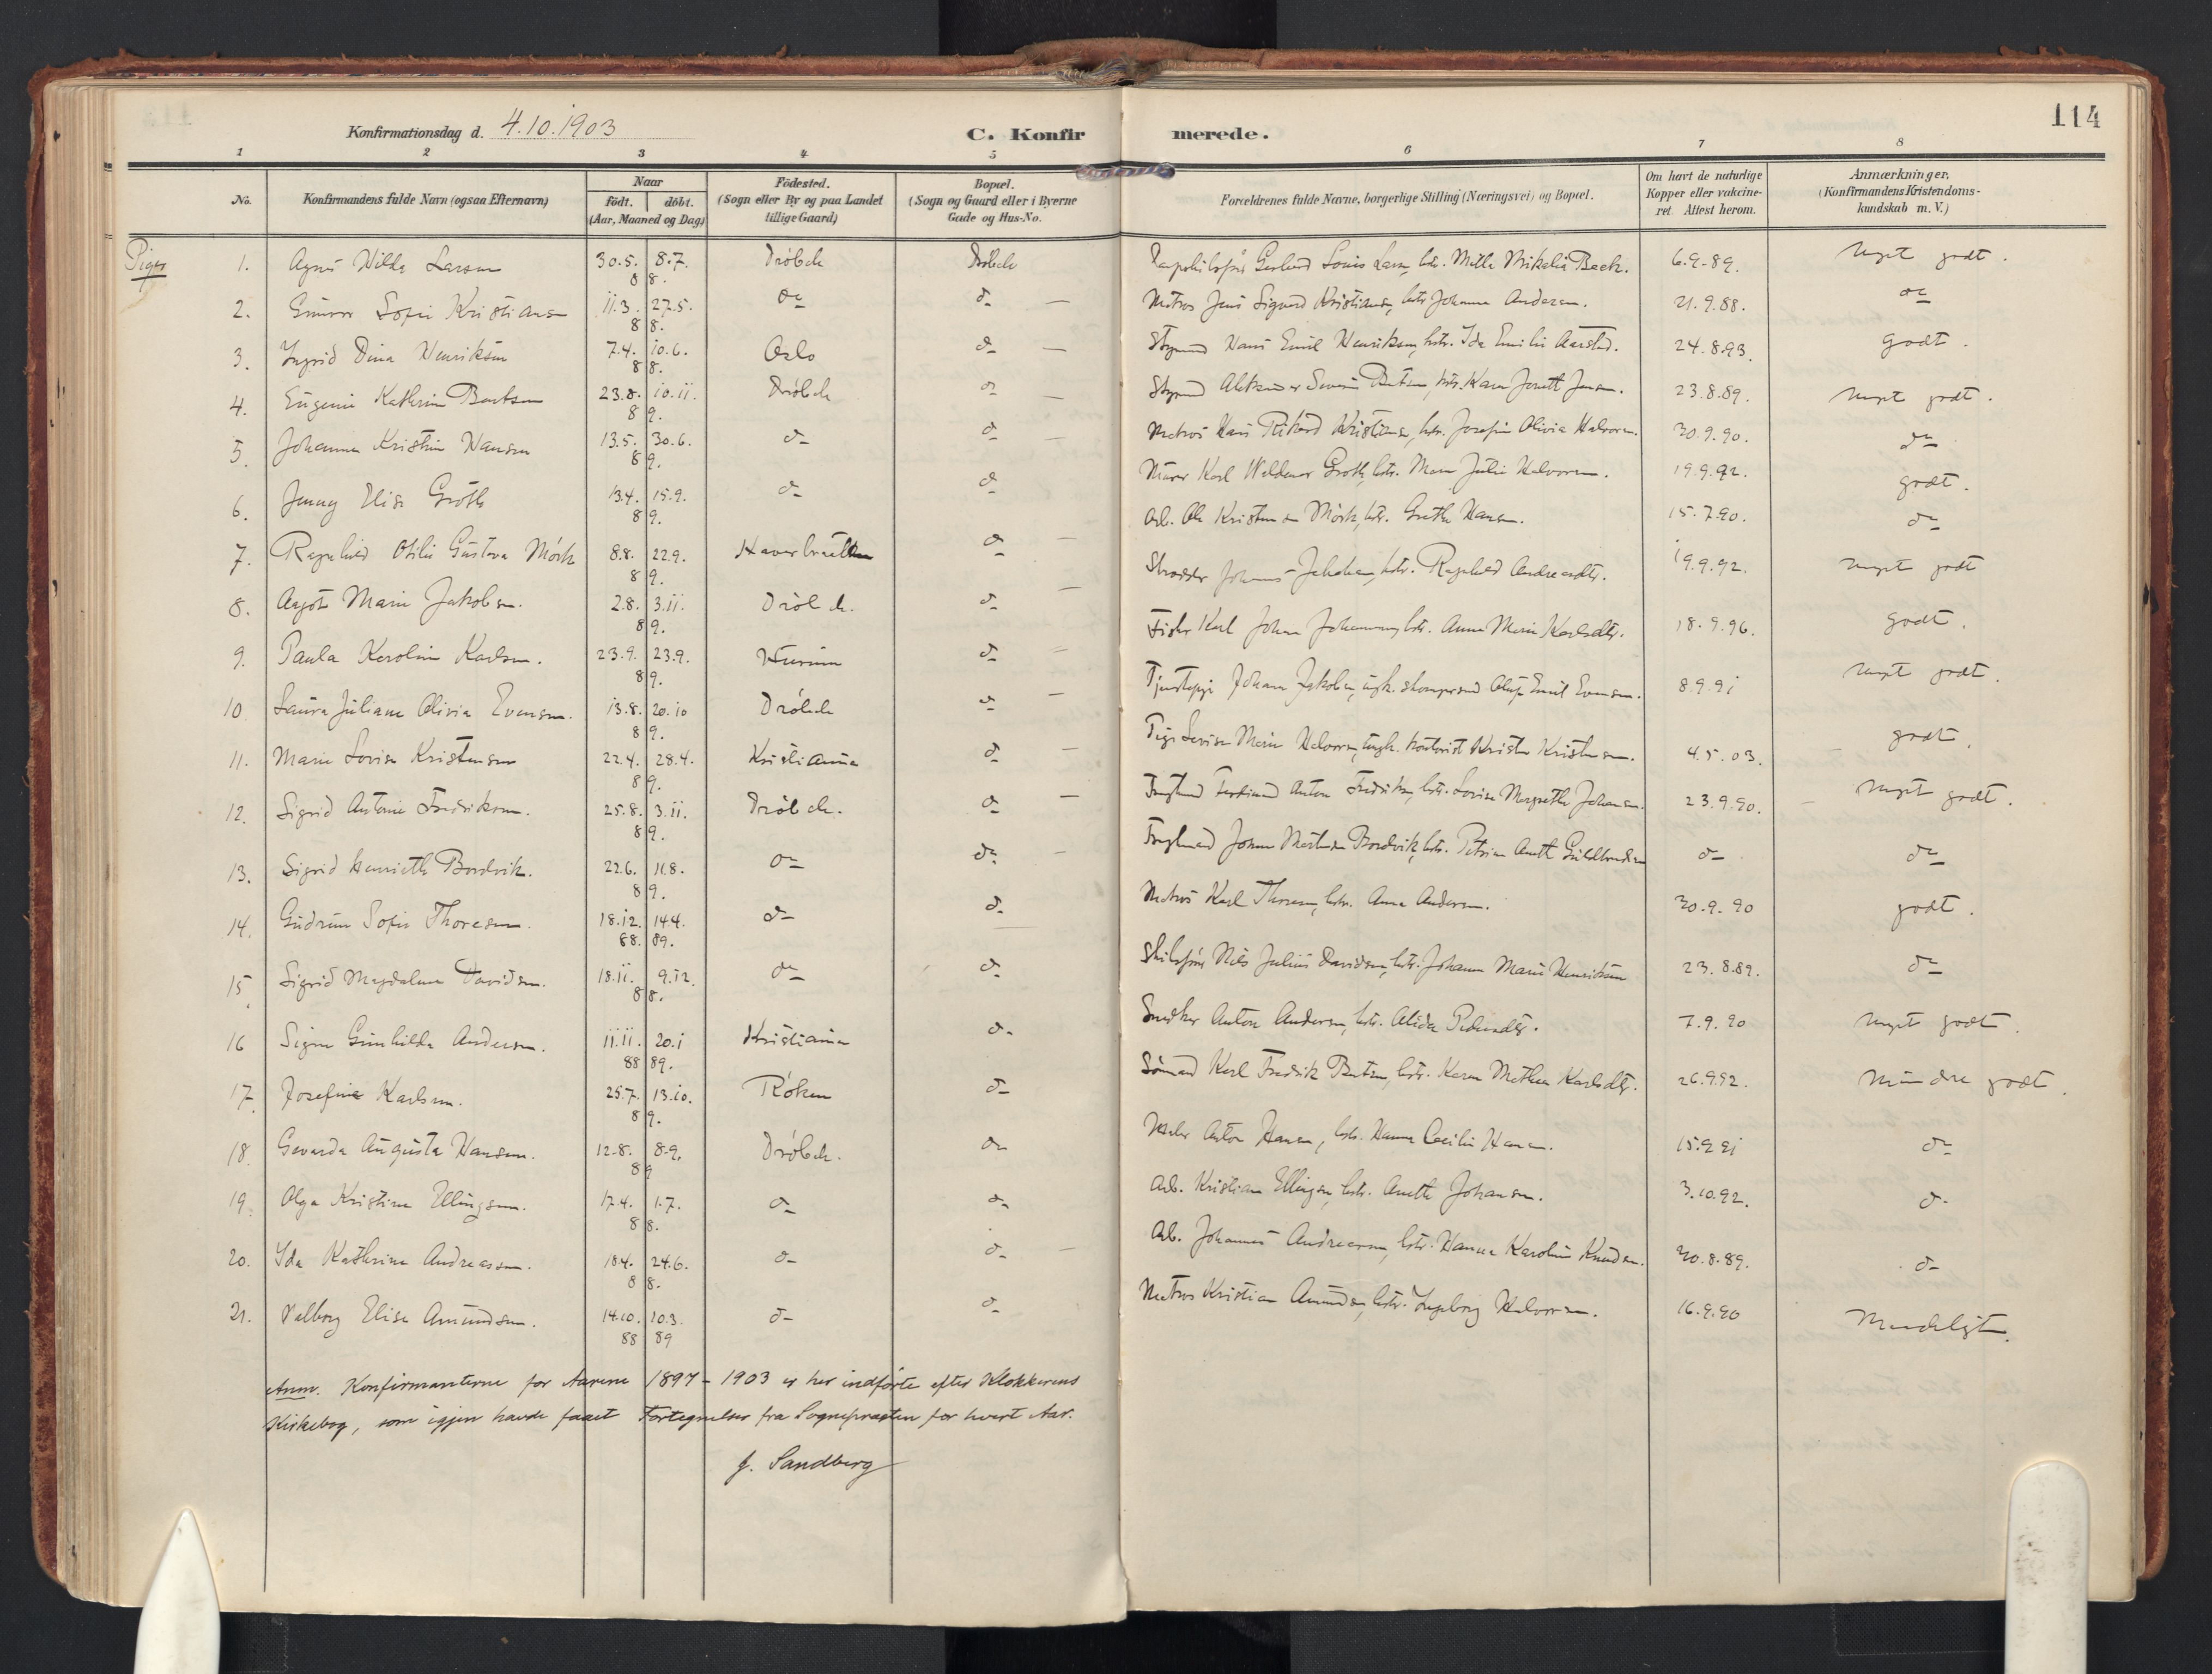 114
Konfirmationsdag d. 4.10.1903
C. Konfirmerede.
1 2 3 4 5 6 7 8
No. Konfirmandens fulde Navn (ogsaa Efternavn) Naar født. døbt. (Aar, Maaned og Dag) Fødested. (Sogn eller By og paa Landet tillige Gaard) Bopæl. (Sogn og Gaard eller i Byerne Gade og Hus-No. Forældrenes fulde Navne, borgerlige Stilling (Næringsvei) og Bopæl. Om havt de naturlige Kopper eller vakcineret. Attest herom. Anmærkninger. (Konfirmandens Kristendomskundskab m. V.)
Piger
1. Agnes Hilda Larsen 30.5. 8.7. 88. Dröbak Dröbak Louis Larsen, Mikalia Beck. 6.9.89. meget godt.
2. Gunvor Sofie Kristiansen 11.3. 27.5. 88. do do Matros Jens Sigurd Kristiansen, hstr. Johanne Andersen. 21.9.88. do
3. Ingrid Dina Henriksen 7.4. 10.6. 88. Oslo do Styrmand Hans Emil Henriksen, hstr. Ida Emilie Aarsted. 24.8.93. godt.
4. Eugenie Kathrine Berntsen 23.8. 10.11. 89. Dröbak do Styrmand Severin Berntsen, hstr. Karen Jensen. 23.8.89. meget godt.
5. Johanne Kristine Hansen 13.5. 30.6. 89. do do Matros Hans Rikard Kristiansen, hstr. Josefine Olivia Halvorsen. 30.9.90. do
6. Jenny Elise Groth 13.4. 15.9. 89. do do Murer Karl Waldemar Groth, hstr. Maren Julie Halvorsen. 19.9.92. godt.
7. Ragnhild Otilie Gustava Mörk 8.8. 22.9. 89. Haverbraaten do Arb. Ole Kristensen Mörk, hstr. Grethe Hansen. 15.7.90. do
8. Aagot Marie Jakobsen. 2.8. 3.11. 89. Dröbak. do Skrædder Johannes Jakobsen, hstr. Ragnhild Andreasdtr. 19.9.92. meget godt
9. Paula Karoline Karlsen. 23.9. 23.9. 89. Hurum do Fisker Karl Johan Johannesen, hstr. Anne Marie Karlsdtr. 18.9.96. godt.
10 Laura Juliane Olivia Evensen. 13.8. 20.10 89. Dröbak do Tjenstepige Johanne Jakobsen, ugk. Olaf Emil Evensen. 8.9.91 meget godt.
11. Marie Lovise Kristensen 22.4. 28.4. 89. Kristiania do Pige Lovise Marie Halvorsen, ungk. kontorist Kristen Kristensen. 4.5.03. godt.
12. Sigrid Antonie Fredriksen. 25.8. 3.11. 89. Dröbak. do Ferdinand Anton Fredriksen, hstr. Lovise Margrethe Johansen. 23.9.90. meget godt.
13. Sigrid Henriette Bordvik. 22.6. 11.8. 89. do do Johan Bordvik, hstr. Petrine Anette Guldbrandsen do do
14. Gudrun Sofie Thoresen. 18.12. 14.4. 88. 89. do do Matros Karl Thoresen, hstr. Anna Andersen. 30.9.90 godt.
15. Sigrid Magdalene Davidsen. 18.11. 9.12. 88. do do Skibsförer Nils Julius Davidsen, hstr. Johanne Marie Henriksen 23.8.89. do
16 Signe Gunhilda Andersen. 11.11. 20.1 88 89. Kristiania do Snedker Anton Andersen, hstr. Alida Pedersdtr. 7.9.90 meget godt.
17. Josefine Karlsen. 25.7. 13.10. 89. Röken do Sömand Karl Fredrik Berntsen, hstr. Karen Mathea Karlsdtr. 26.9.92. mindre godt.
18. Gevarda Augusta Hansen. 12.8. 8.9. 89 Dröbak. do Maler Anton Hansen, hstr. Hanna Cecilie Hansen. 15.9.91 do
19. Olga Kristine Ellingsen. 17.4. 1.7. 88. do do Arb. Kristian Ellingsen, hstr. Anette Johansen. 3.10.92. do
20. Ida Kathrine Andreassen. 18.4. 24.6. 88. do do Arb. Johannes Andreassen, hstr. Hanna Karoline Knudsen. 30.8.89. do
21. Valborg Elise Amundsen. 14.10. 10.3. 88 89 do do Matros Kristian Amundsen, hstr. Ingeborg Halvorsen. 16.9.90 Maadeligt.
Anm. Konfirmanterne for Aarene 1897-1903 er her indførte efter Klokkerens
Kirkebog, som igjen havde faaet Fortegnelser fra Sognepræsten for hvert Aar.
J. Sandberg